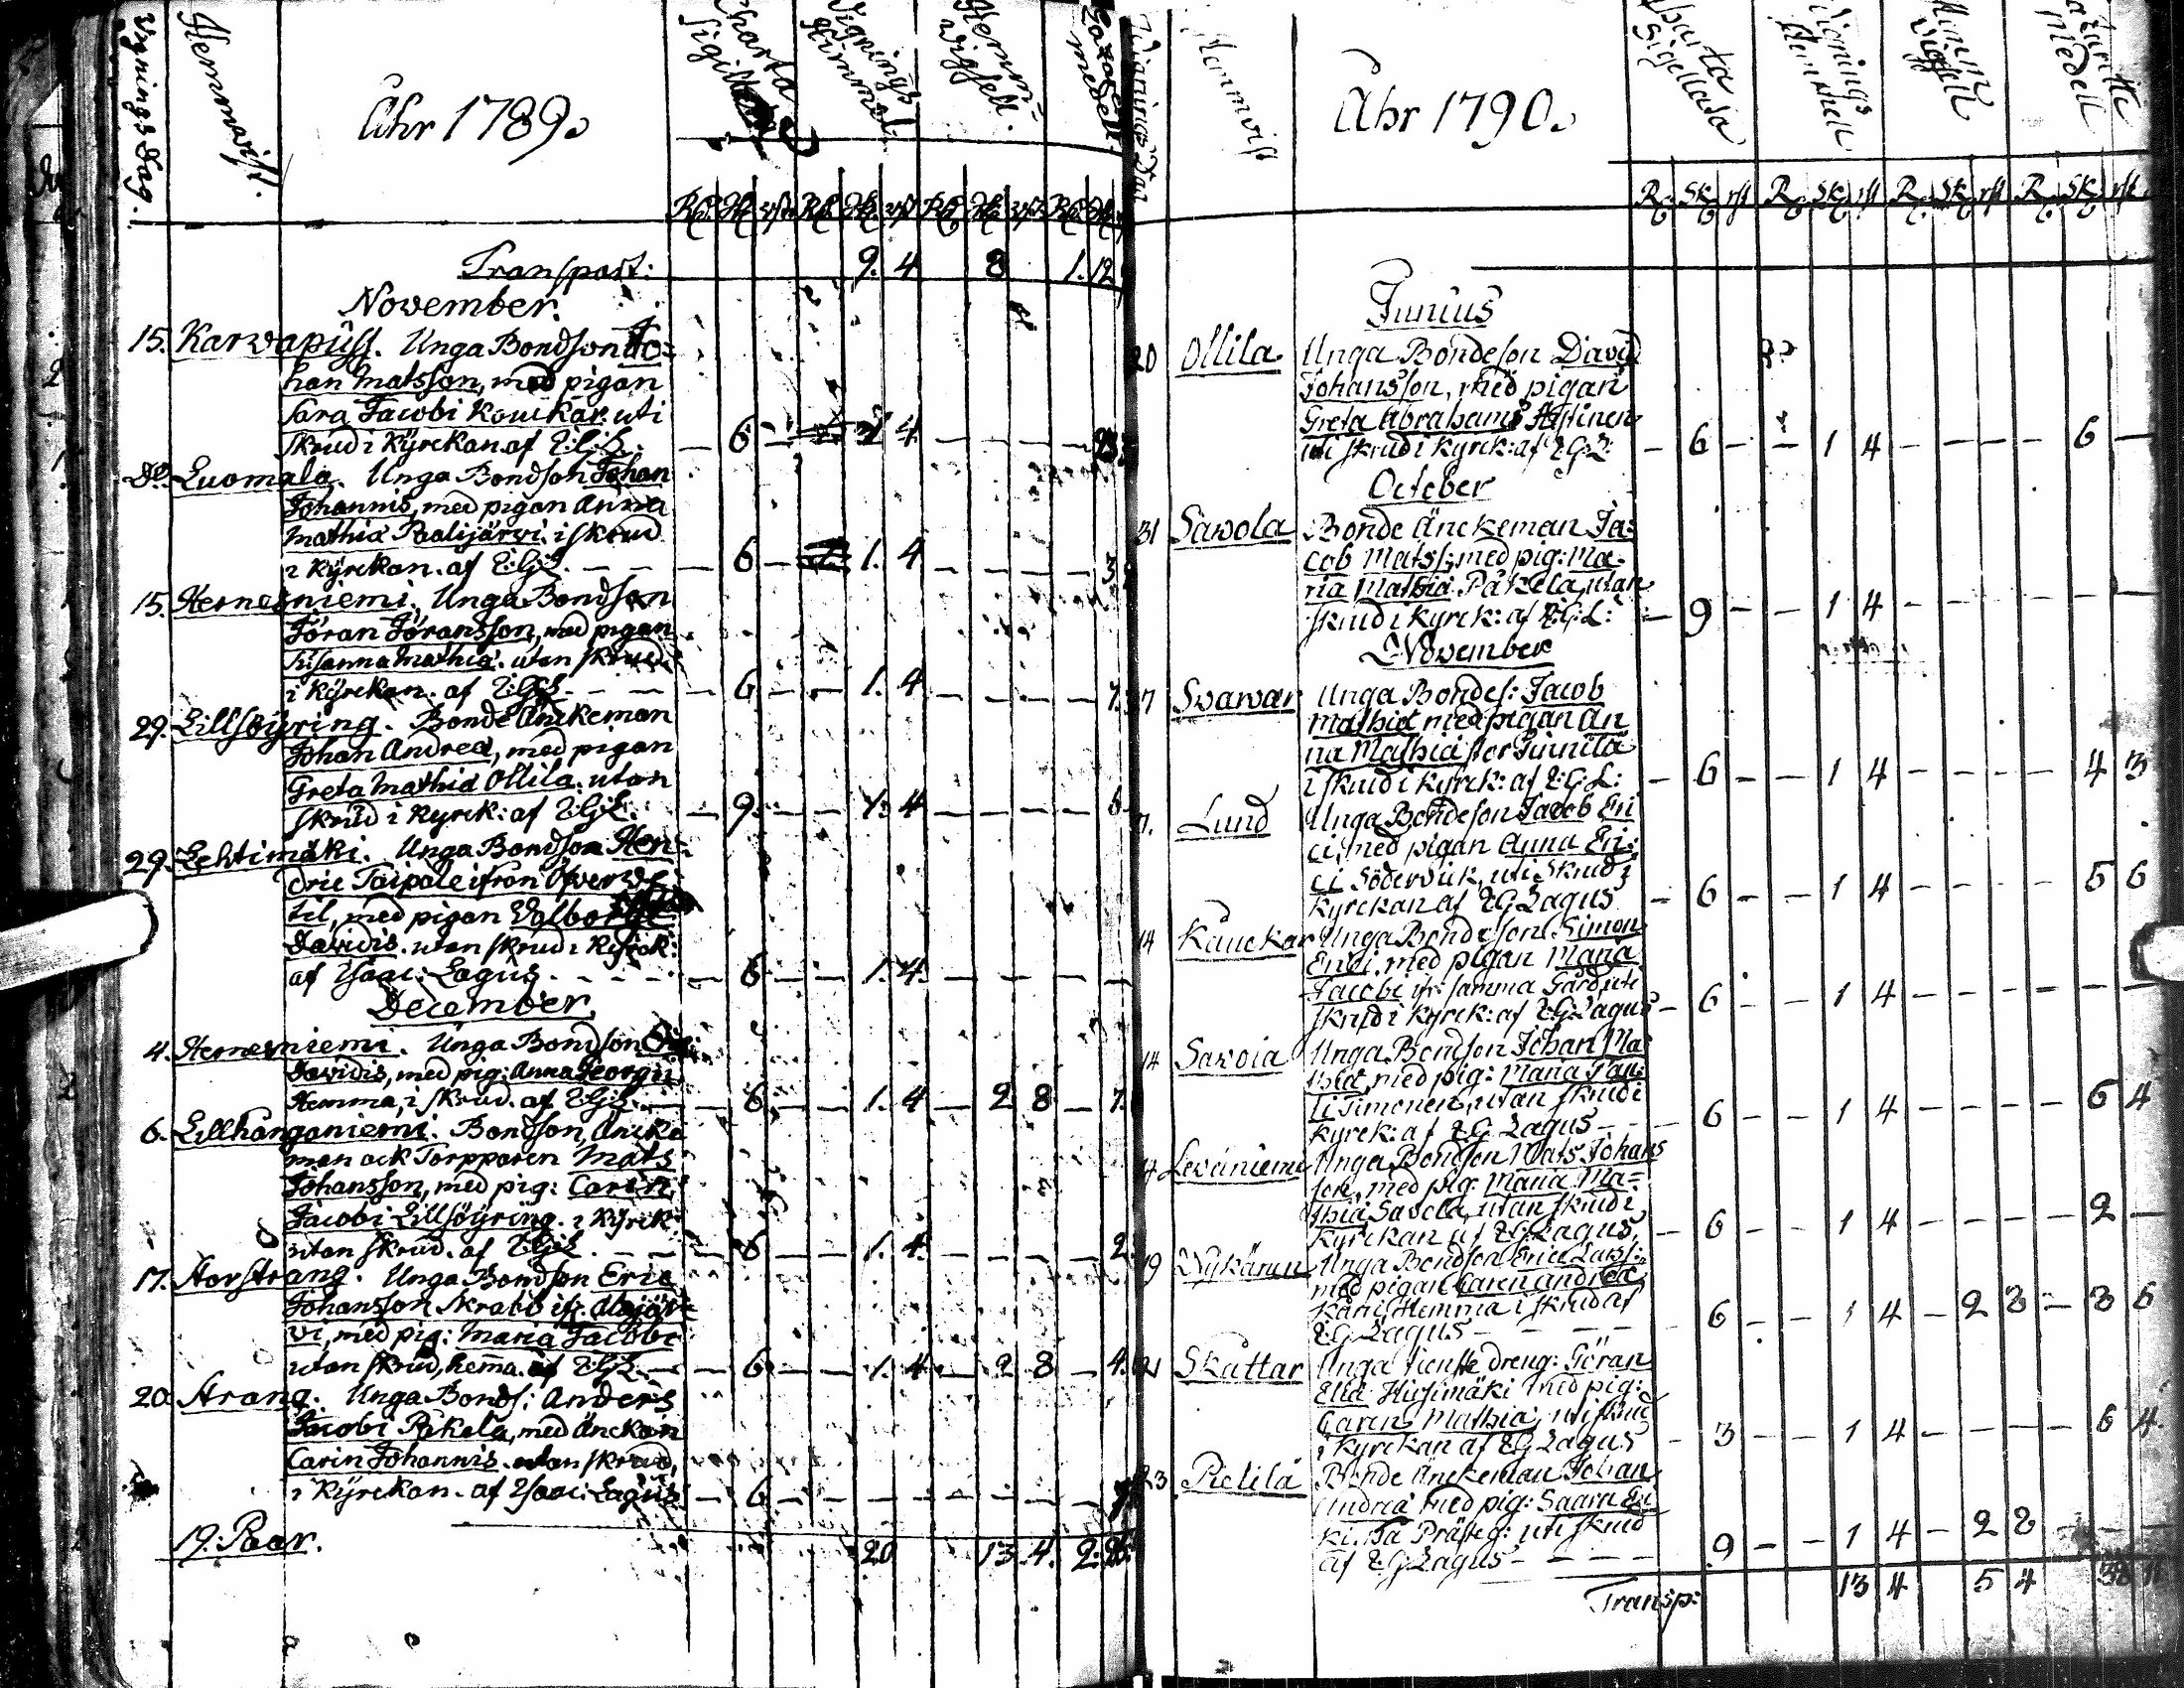 Wignings Dag.
Hemmavist.
Åhr 1789.
Charta Sigill
Vignings Himmel
Hemm= wigsell.
medell.
Transport: 9. 4 8 1. 12
November.
15. Karwapuss. Unga Bondson Jo=
han Matsson, med pigan
Sara Jacobi Kouckar. uti
skrud i Kyrckan af E:G:L. — 6 — — 4 — — —
do. Luomala. Unga Bondson Johan
Johannis, med pigan Anna
Mathiæ Paalijärvi. i skrud
i Kyrckan. af E:G:L. — — — 6 — 1. 4 — — — 3
15. Hernesniemi. Unga Bondson
Jöran Jöransson, med pigan
Susanna Mathiæ. utan skrud
i Kyrckan. af E:G:L. — — — 6 — — 1. 4 — — — 7.
29. Lillsöyring. Bonde Änckeman
Johan Andreæ, med pigan
Greta Mathiæ Ollila. utan
skrud i Kyrck: af E:G:L. — 9. — — 1. 4 — — — 6
29. Lehtimäki. Unga Bondson Hen=
dric Taipale ifrån Öfverwe
til, med pigan Valborg
Davidis. utan skrud i Kyrck:
af Isaac: Lagus. — — — 6 — — 1. 4. — — —
December.
4. Hernesniemi. Unga Bondson
Davidis, med pig: Anna Georgii
Hemma, i skrud. af E:G:L. — 6 — — 1. 4 — 2 8 — 7.
6. Lillkanganiemi. Bondson, Äncke
man ock Torpparen Mats
Johansson, med pig: Carin
Jacobi Lillsöyring. i Kyrck
utan skrud. af E:G:L. — — 6 — — 1. 4. — — — 2.
17. Storstrang. Unga Bondson Eric
Johansson Skrabb ifr. Alajär=
vi, med pig: Maria Jacobi
utan skrud, hema. af E:G:L. — — 6 — — 1. 4 — 2 8 — 4.
20. Strang. Unga Bonds: Anders
Jacobi Pakela, med Änckan
Carin Johannis. utan skrud,
i Kyrckan. af Isaac: Lagus — 6 — — — — — —
19. Paar. 20 13 4. 2:
Wignings Dag
Hemmvist
Åhr 1790.
Charta Sigillata
Wignings
Hemm Vigsell
medell
Rd Sk rst Rd Sk rst Rd Sk rst Rd Sk rst
Junius
20 Ollila Unga Bondeson David
Johansson, med pigan
Greta Abrahams
uti skrud i Kyrck: af E:G:L: — 6 — — 1 4 — — — — 6 —
October
31 Sawola Bonde Änckeman Ja=
cob Mats: med pig: Ma=
ria Mathiæ Päkkela, utan
skrud i Kyrck: af E:G:L: — 9 — — 1 4 — — — — — —
November
7 Svawar Unga Bondes: Jacob
Mathiæ med pigan An
na Mathiæ stor
i skrud i Kyrck: af E:G:L: — 6 — — 1 4 — — — — 4 3
7. Lund Unga Bondeson Jacob Eri
ci, med pigan Anna Eri=
ci Söderwik, uti skrud i
Kyrckan af E G Lagus — 6 — — 1 4 — — — — 5 6
14 Kauckar Unga Bondesson Simon
Erici, med pigan Maria
Jacobi ifr: samma Gård uti
skrud i Kyrck: af E G Lagus — 6 — — 1 4 — — — — — —
14 Savola Unga Bondson Johan Ma=
thiæ, med pig: Maria
Timonen, utan skrud i
Kyrck: af E G Lagus — — 6 — — 1 4 — — — — 6 4
Levaniemi Unga Bondson Mats Johans
son, med pig: Maria Ma=
thiæ Savola, utan skrud i
Kyrckan af E G Lagus — 6 — — 1 4 — — — — 2 —
19 Wykären Unga Bondson Eric Larss:
med pigan Caren Andreæ
Hemma i skrud af
E G Lagus — — — — 6 — 1 4 — 2 8 — 3 6
21 Skåttar Unga dreng: Göran
Eliæ Husimäki med pig:
Caren Mathiæ uti skrud
i Kyrckan af E G Lagus — 3 — — 1 4 — — — — 6 4.
23 Pielilä Bonde Änckeman Johan
Andreæ med pig: Saara
Prästeg: uti skrud
af E G Lagus — — — — 9 — — 1 4 — 2 8 — —
Transp: 13 4 5 4